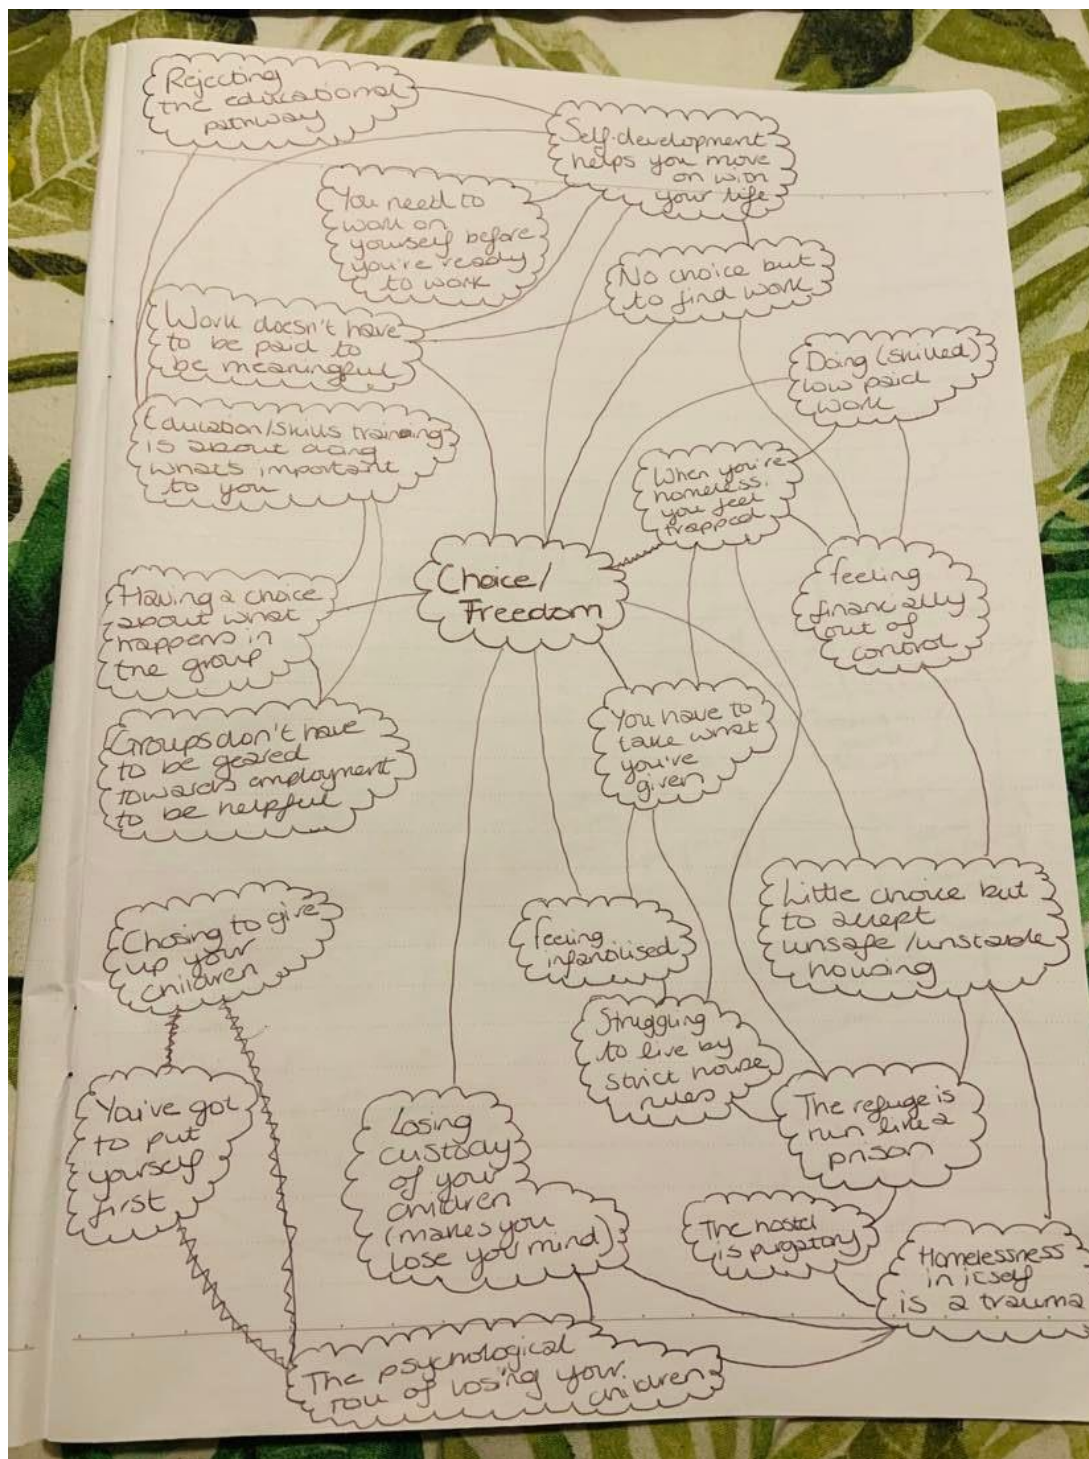 Rejecting
the educational
pathway
Self-development
helps you move
on with
your life
You need to
work on
yourself before
you're ready
to work
No choice but
to find work
Work doesn't have
to be paid to
be meaningful
Doing (skilled)
low paid
work
Education/skills training
is about doing
what's important
to you
When you're
homeless,
you feel
trapped
Choice/
Freedom
feeling
financially
out of
control
Having a choice
about what
happens in
the group
You have to
take what
you're
given
Groups don't have
to be geared
towards employment
to be helpful
Little choice but
to accept
unsafe/unstable
housing
Chosing to give
up your
children
feeling
infantilised
Struggling
to live by
strict house
rules
You've got
to put
yourself
first
Losing
custody
of your
children
(makes you
lose your mind)
The refuge is
run like a
prison
The hostel
is purgatory
Homelessness
in itself
is a trauma
The psychological
toll of losing your
children